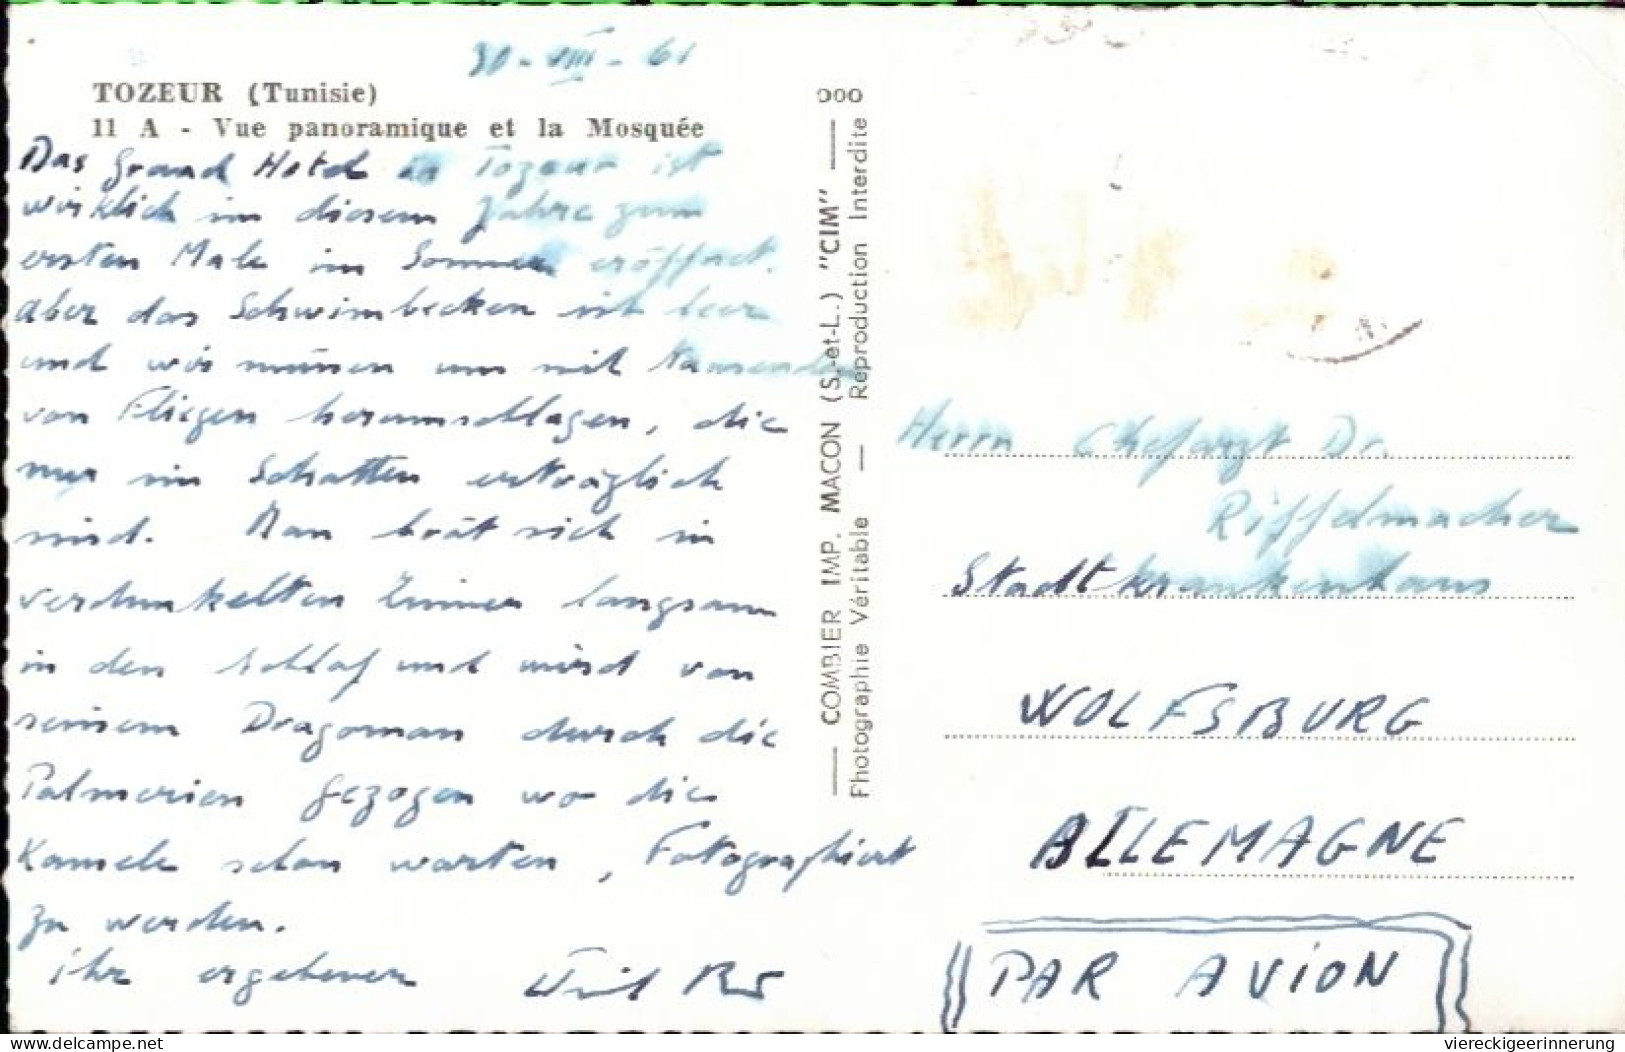 30-VIII-61
TOZEUR (Tunisie)
11 A - Vue panoramique et la Mosquée
Das Grand Hotel in Tozeur ist
wirklich in diesem Jahre zum
ersten Male im Sommer eröffnet.
Aber das Schwimbecken ist leer
und wir müssen uns mit tausenden
von Fliegen herumschlagen, die
nur im Schatten erträglich
sind. Man brät sich in
verdunkelten Zimmer langsam
in den Schlaf und wird von
seinem Dragoman durch die
Palmerien gezogen wo die
Kamele schon warten, Fotographiert
zu werden.
ihr ergebener
COMBIER IMP. MACON (S.-et-L.) "CIM"
Photographie Véritable — Reproduction Interdite
Herrn Chefarzt Dr.
Riffelmacher
Stadtkrankenhaus
WOLFSBURG
ALLEMAGNE
PAR AVION
delcampe.net
viereckigeerinnerung